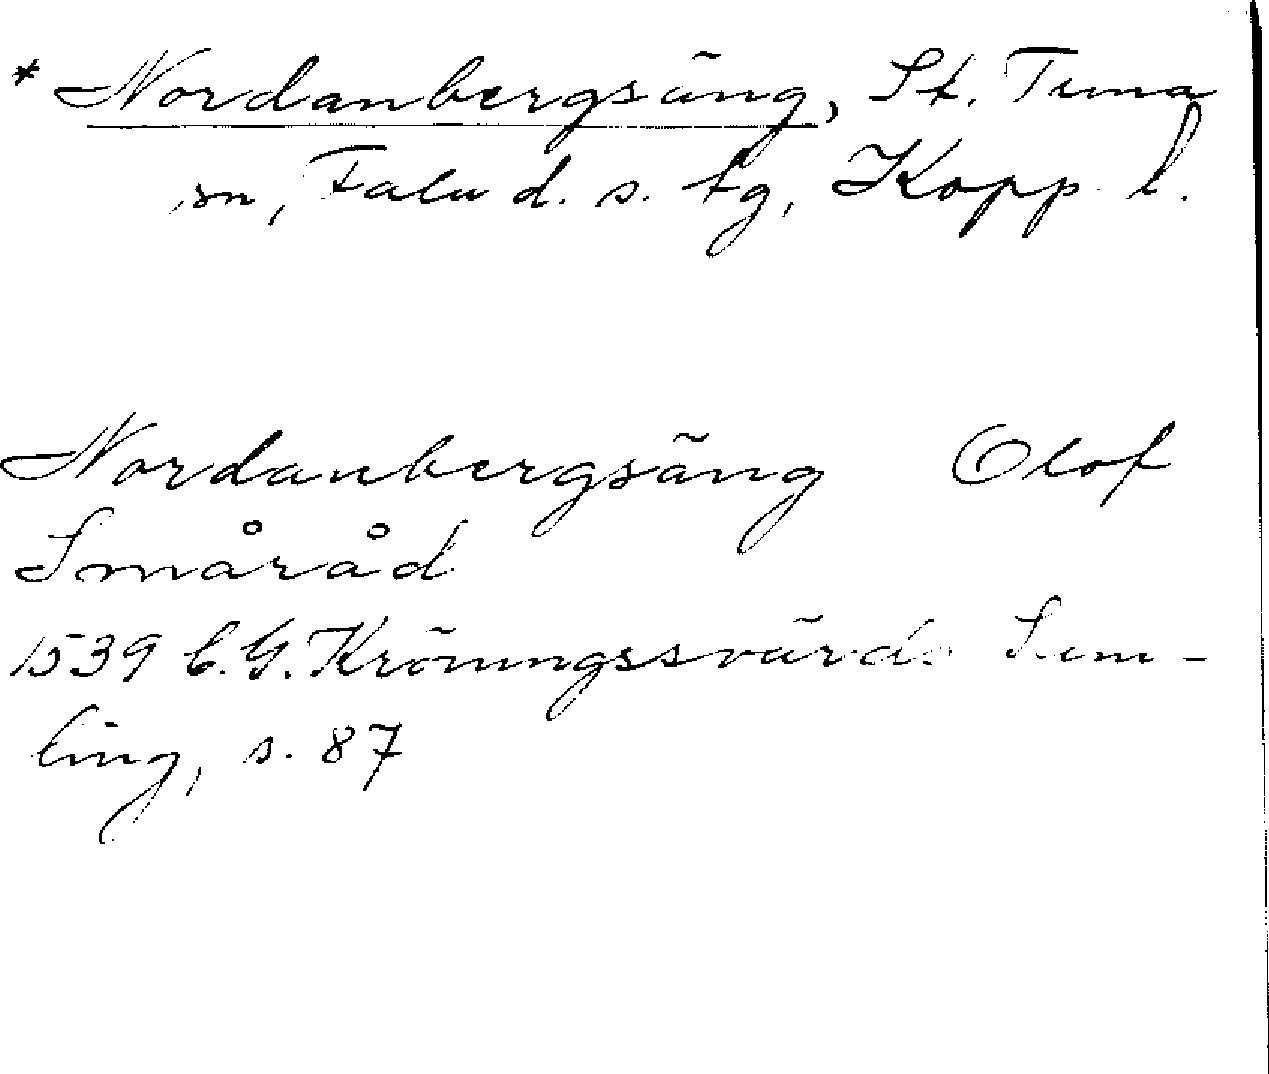 * Nordanbergsäng, St. Tuna
sn, Falu d. s. tg, Kopp. l.
Nordanbergsäng Olof
Småråd
1539 C. G. Kröningssvärds Sam-
ling, s. 87